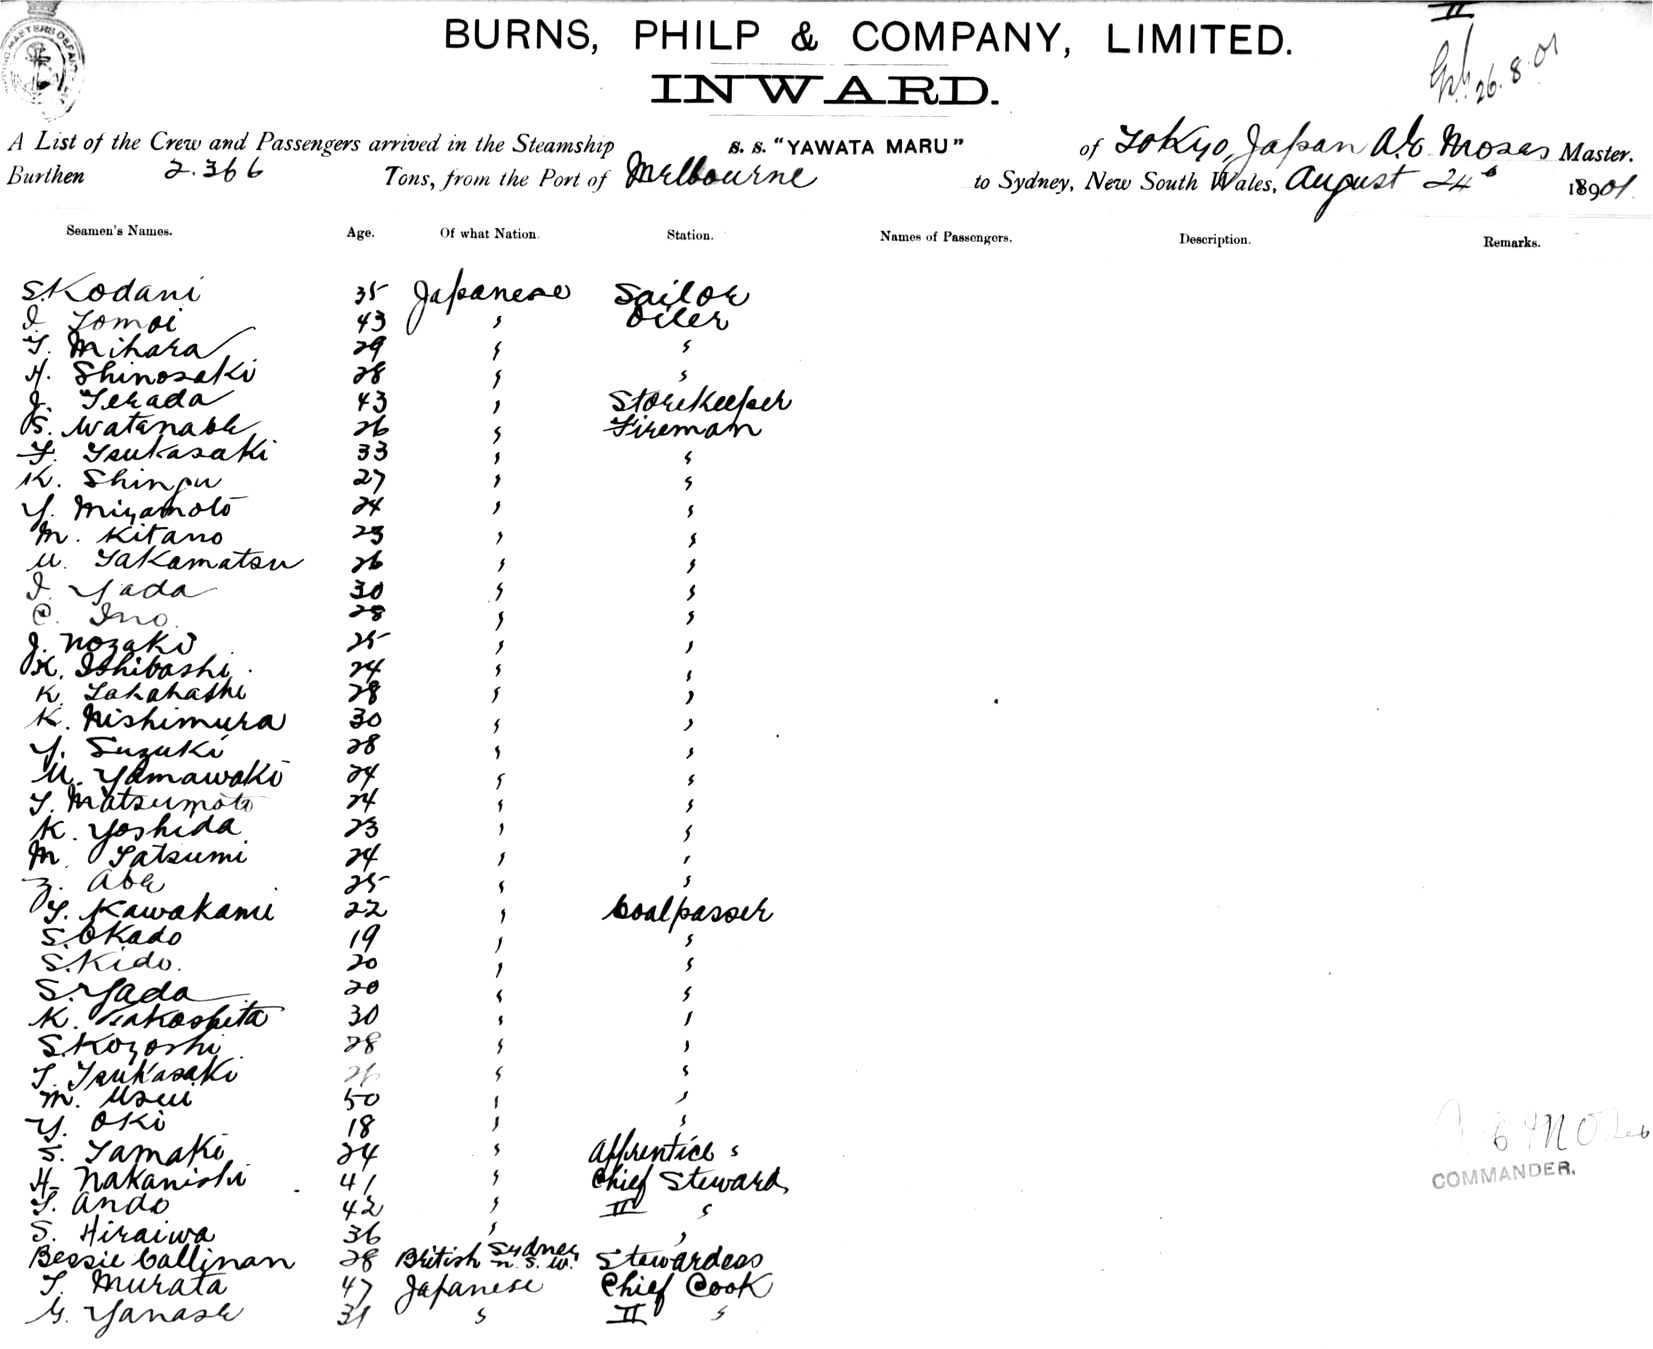 BURNS, PHILP & COMPANY, LIMITED.
II
26.8.01
INWARD.
A List of the Crew and Passengers arrived in the Steamship S. S. "YAWATA MARU" of Tokyo, Japan A.E. Moses Master.
Burthen 2.366 Tons, from the Port of Melbourne to Sydney, New South Wales, August 24th 1901
Seamen's Names. Age. Of what Nation. Station. Names of Passengers. Description. Remarks.
S. Kodani 35 Japanese Sailor
I. Tomoi 43 " Oiler
T. Mihara 29 " "
H. Shinosaki 28 " "
J. Terada 43 " Storekeeper
S. Watanabe 26 " Fireman
F. Tsukasaki 33 " "
K. Shinpu 27 " "
Y. Miyamoto 24 " "
M. Kitano 23 " "
U. Takamatsu 26 " "
I. Yada 30 " "
C. Ino 28 " "
J. Nozaki 25 " "
K. Ishibashi 24 " "
K. Takahashi 28 " "
K. Nishimura 30 " "
Y. Suzuki 28 " "
U. Yamawaki 24 " "
T. Matsumoto 24 " "
K. Yoshida 23 " "
M. Tatsumi 24 " "
Z. Abe 25 " "
T. Kawakami 22 " Coalpasser
S. Okado 19 " "
S. Kido. 20 " "
S. Yada 20 " "
K. Takoshita 30 " "
S. Kozoshi 28 " "
T. Tsukasaki 26 " "
M. Usui 50 " "
Y. Oki 18 " "
S. Tamaki 24 " Apprentice "
H. Nakanishi 41 " Chief Steward
T. Ando 42 " II "
S. Hiraiwa 36 " "
Bessie Callinan 28 British Sydney N.S.W. Stewardess
T. Murata 47 Japanese Chief Cook
G. Yanase 31 " II "
COMMANDER.